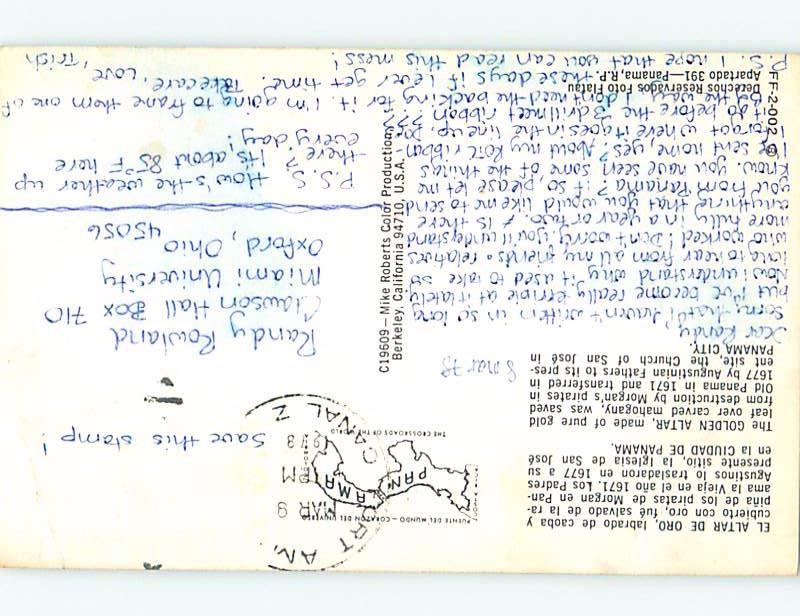 EL ALTAR DE ORO, labrado de caoba y
cubierto con oro, fué salvado de la ra-
piña de los piratas de Morgan en Pan-
ama la Vieja en el año 1671. Los Padres
Agustinos lo trasladaron en 1677 a su
presente sitio, la Iglesia de San José
en la CIUDAD DE PANAMA.
The GOLDEN ALTAR, made of pure gold
leaf over carved mahogany, was saved
from destruction by Morgan's pirates in
Old Panama in 1671 and transferred in
1677 by Augustinian Fathers to its pres-
ent site, the Church of San José in
PANAMA CITY.
8 Mar 78
Dear Randy,
Sorry that I haven't written in so long
but I've become really terrible at it lately.
Now I understand why it used to take so
long to hear from all my friends & relatives
who worked! Don't worry, you'll understand
more fully in a year or two. If is there
anything that you would like me to send
your from Panama? If so, please let me
know. You have seen some of the things
I've sent home, yes? About my ROTC ribbon-
I forgot where it goes in the line up. Do
it go before the 3 drill meet ribbon???
By the way, I don't need the backing for it. I'm going to frame them one of
these days if I ever get time. Take care, Love, Trish
P.S. I hope that you can read this mess!
FF-2-002 ©
Derechos Reservados Foto Flatau
Apartado 391—Panama, R.P.
C19609—Mike Roberts Color Productions
Berkeley, California 94710, U.S.A.
PUENTE DEL MUNDO — CORAZON DEL UNIVERSO
PANAMA
THE CROSSROADS OF THE WORLD
RT AM
MAR 9
PM
1978
CANAL Z
Save this stamp!
Randy Rowland
Clawson Hall Box 710
Miami University
Oxford, Ohio
45056
P.S.S. How's the weather up
there? It's about 85°F here
every day!